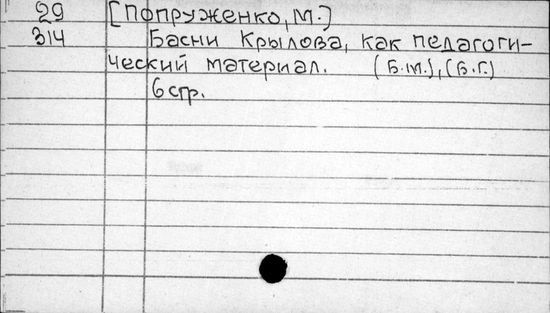 29 [Попруженко, М.]
314 Басни Крылова, как педагоги-
ческий материал. (Б.м.), (Б.г.)
6 стр.